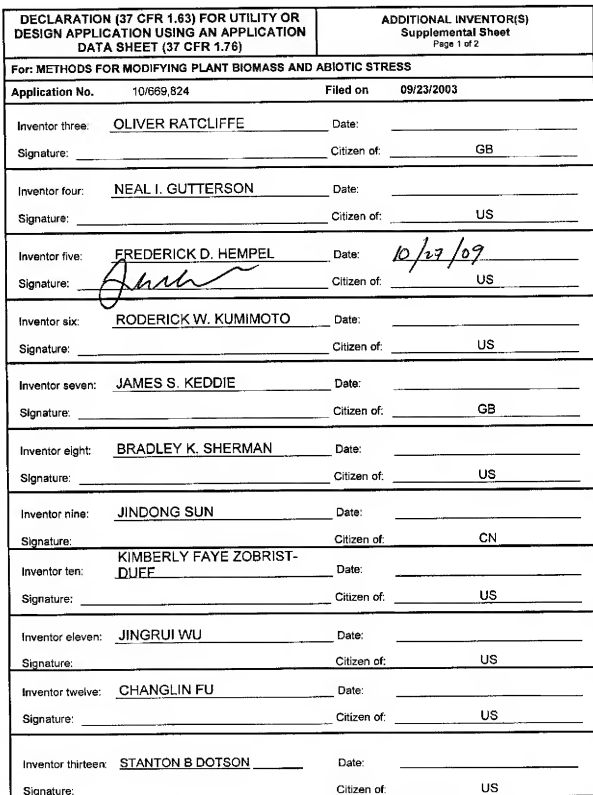 DECLARATION (37 CFR 1.63) FOR UTILITY OR
DESIGN APPLICATION USING AN APPLICATION
DATA SHEET (37 CFR 1.76)
ADDITIONAL INVENTOR(S)
Supplemental Sheet
Page 1 of 2
For: METHODS FOR MODIFYING PLANT BIOMASS AND ABIOTIC STRESS
Application No. 10/669,824 Filed on 09/23/2003
Inventor three: OLIVER RATCLIFFE Date:
Signature: Citizen of: GB
Inventor four: NEAL I. GUTTERSON Date:
Signature: Citizen of: US
Inventor five: FREDERICK D. HEMPEL Date: 10/27/09
Signature: Citizen of: US
Inventor six: RODERICK W. KUMIMOTO Date:
Signature: Citizen of: US
Inventor seven: JAMES S. KEDDIE Date:
Signature: Citizen of: GB
Inventor eight: BRADLEY K. SHERMAN Date:
Signature: Citizen of: US
Inventor nine: JINDONG SUN Date:
Signature: Citizen of: CN
KIMBERLY FAYE ZOBRIST-
Inventor ten: DUFF Date:
Signature: Citizen of: US
Inventor eleven: JINGRUI WU Date:
Signature: Citizen of: US
Inventor twelve: CHANGLIN FU Date:
Signature: Citizen of: US
Inventor thirteen: STANTON B DOTSON Date:
Signature: Citizen of: US